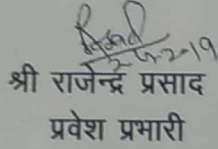 श्री राजेन्द्र प्रसाद
प्रवेश प्रभारी